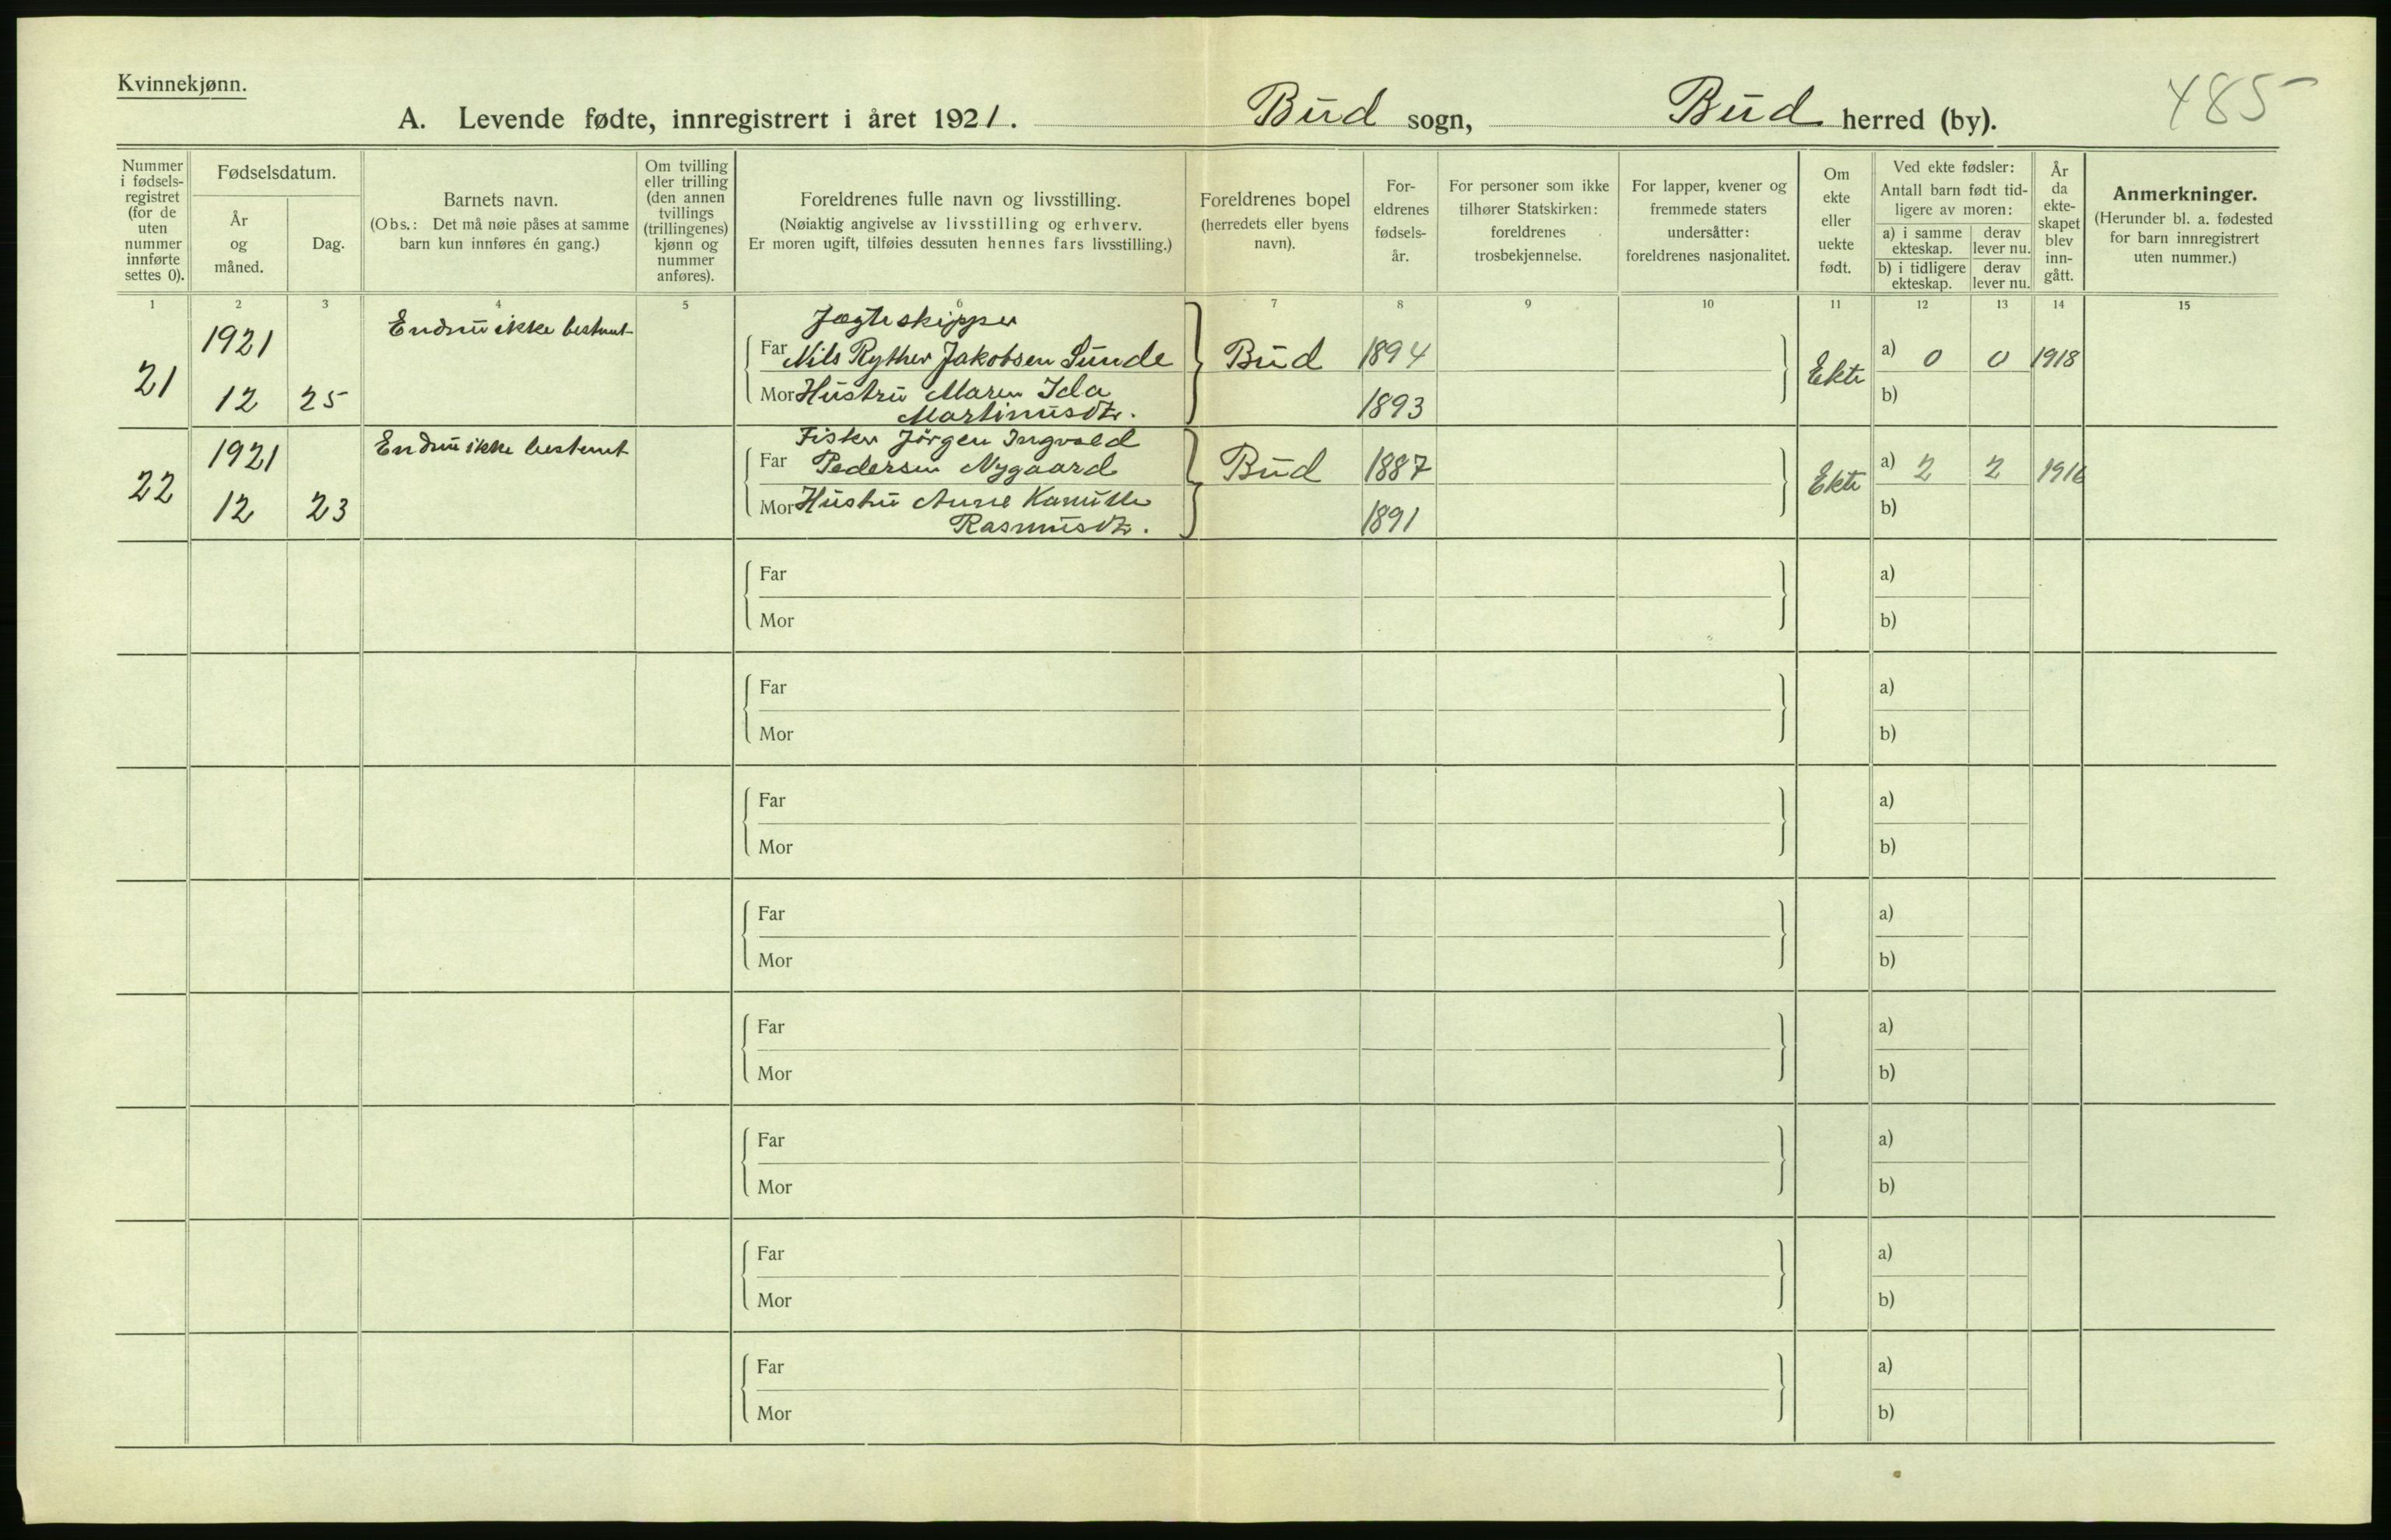 Kvinnekjønn.
A. Levende fødte, innregistrert i året 1921. Bud sogn, Bud herred (by).
485
Nummer i fødsels-registret (for de uten nummer innførte settes 0).
Fødselsdatum.
År og måned.
Dag.
Barnets navn.
(Obs.: Det må nøie påses at samme barn kun innføres én gang.)
Om tvilling eller trilling (den annen tvillings (trillingenes) kjønn og nummer anføres).
Foreldrenes fulle navn og livsstilling.
(Nøiaktig angivelse av livsstilling og erhverv.
Er moren ugift, tilføies dessuten hennes fars livsstilling.)
Foreldrenes bopel
(herredets eller byens navn).
For-eldrenes fødsels-år.
For personer som ikke tilhører Statskirken: foreldrenes trosbekjennelse.
For lapper, kvener og fremmede staters undersåtter: foreldrenes nasjonalitet.
Om ekte eller uekte født.
Ved ekte fødsler:
Antall barn født tid-ligere av moren:
a) i samme ekteskap.
derav lever nu.
b) i tidligere ekteskap.
derav lever nu.
År da ekte-skapet blev inn-gått.
Anmerkninger.
(Herunder bl. a. fødested for barn innregistrert uten nummer.)
1 2 3 4 5 6 7 8 9 10 11 12 13 14 15
21
1921
12 25
Endnu ikke bestemt
Jægteskipper
Far Nils Ryther Jakobsen Sunde
Mor Hustru Maren Ida
Martinusdtr.
Bud
1894
1893
Ekte
a) 0 0 1918
b)
22
1921
12 23
Endnu ikke bestemt
Fisker Jörgen Ingvald
Far Pedersen Nygaard
Mor Hustru Anne Kamille
Rasmusdtr.
Bud
1887
1891
Ekte
a) 2 2 1916
b)
Far a)
Mor b)
Far a)
Mor b)
Far a)
Mor b)
Far a)
Mor b)
Far a)
Mor b)
Far a)
Mor b)
Far a)
Mor b)
Far a)
Mor b)